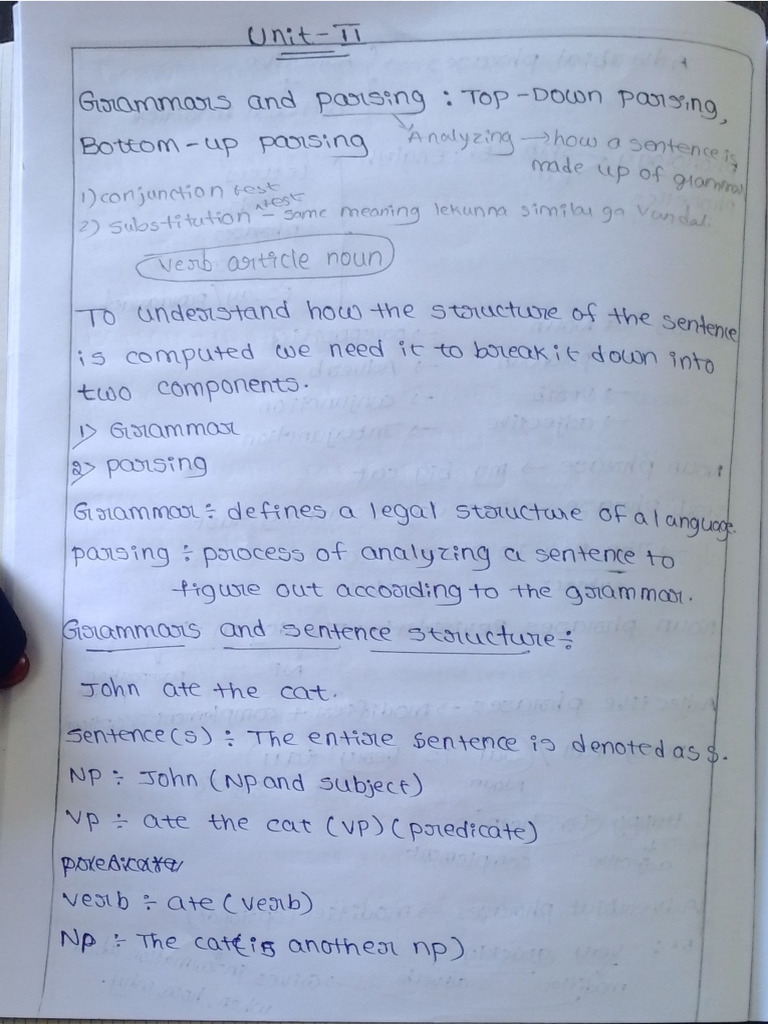 Unit-II
Grammars and parsing : Top-Down parsing,
Bottom-up parsing Analyzing → how a sentence is
made up of grammar
1) conjunction test
2) substitution test - same meaning lekunna similar ga vundali
verb article noun
To understand how the structure of the sentence
is computed we need it to break it down into
two components.
1> Grammar
2> parsing
Grammar ÷ defines a legal structure of a language.
parsing ÷ process of analyzing a sentence to
figure out according to the grammar.
Grammars and sentence structure ÷
John ate the cat.
sentence(s) ÷ The entire sentence is denoted as s.
NP ÷ John (NP and subject)
VP ÷ ate the cat (VP) (predicate)
predicate
verb ÷ ate (verb)
NP ÷ The cat (is another np)